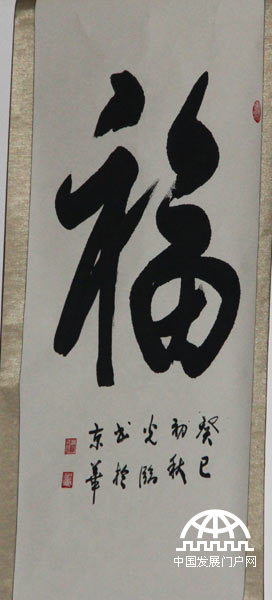 福
癸巳
初秋
光临
书于
京華
中国发展门户网